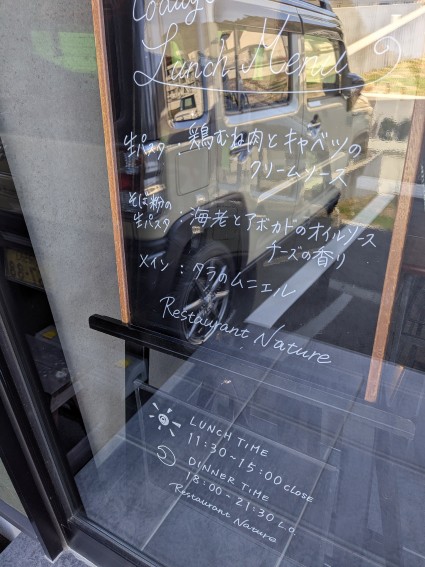 Today's
Lunch Menu
生パスタ：鶏むね肉とキャベツの
クリームソース
そば粉の
生パスタ：海老とアボカドのオイルソース
チーズの香り
メイン：タラのムニエル
Restaurant Nature
LUNCH TIME
11:30~15:00 CLOSE
DINNER TIME
18:00~21:30 L.O.
Restaurant Nature